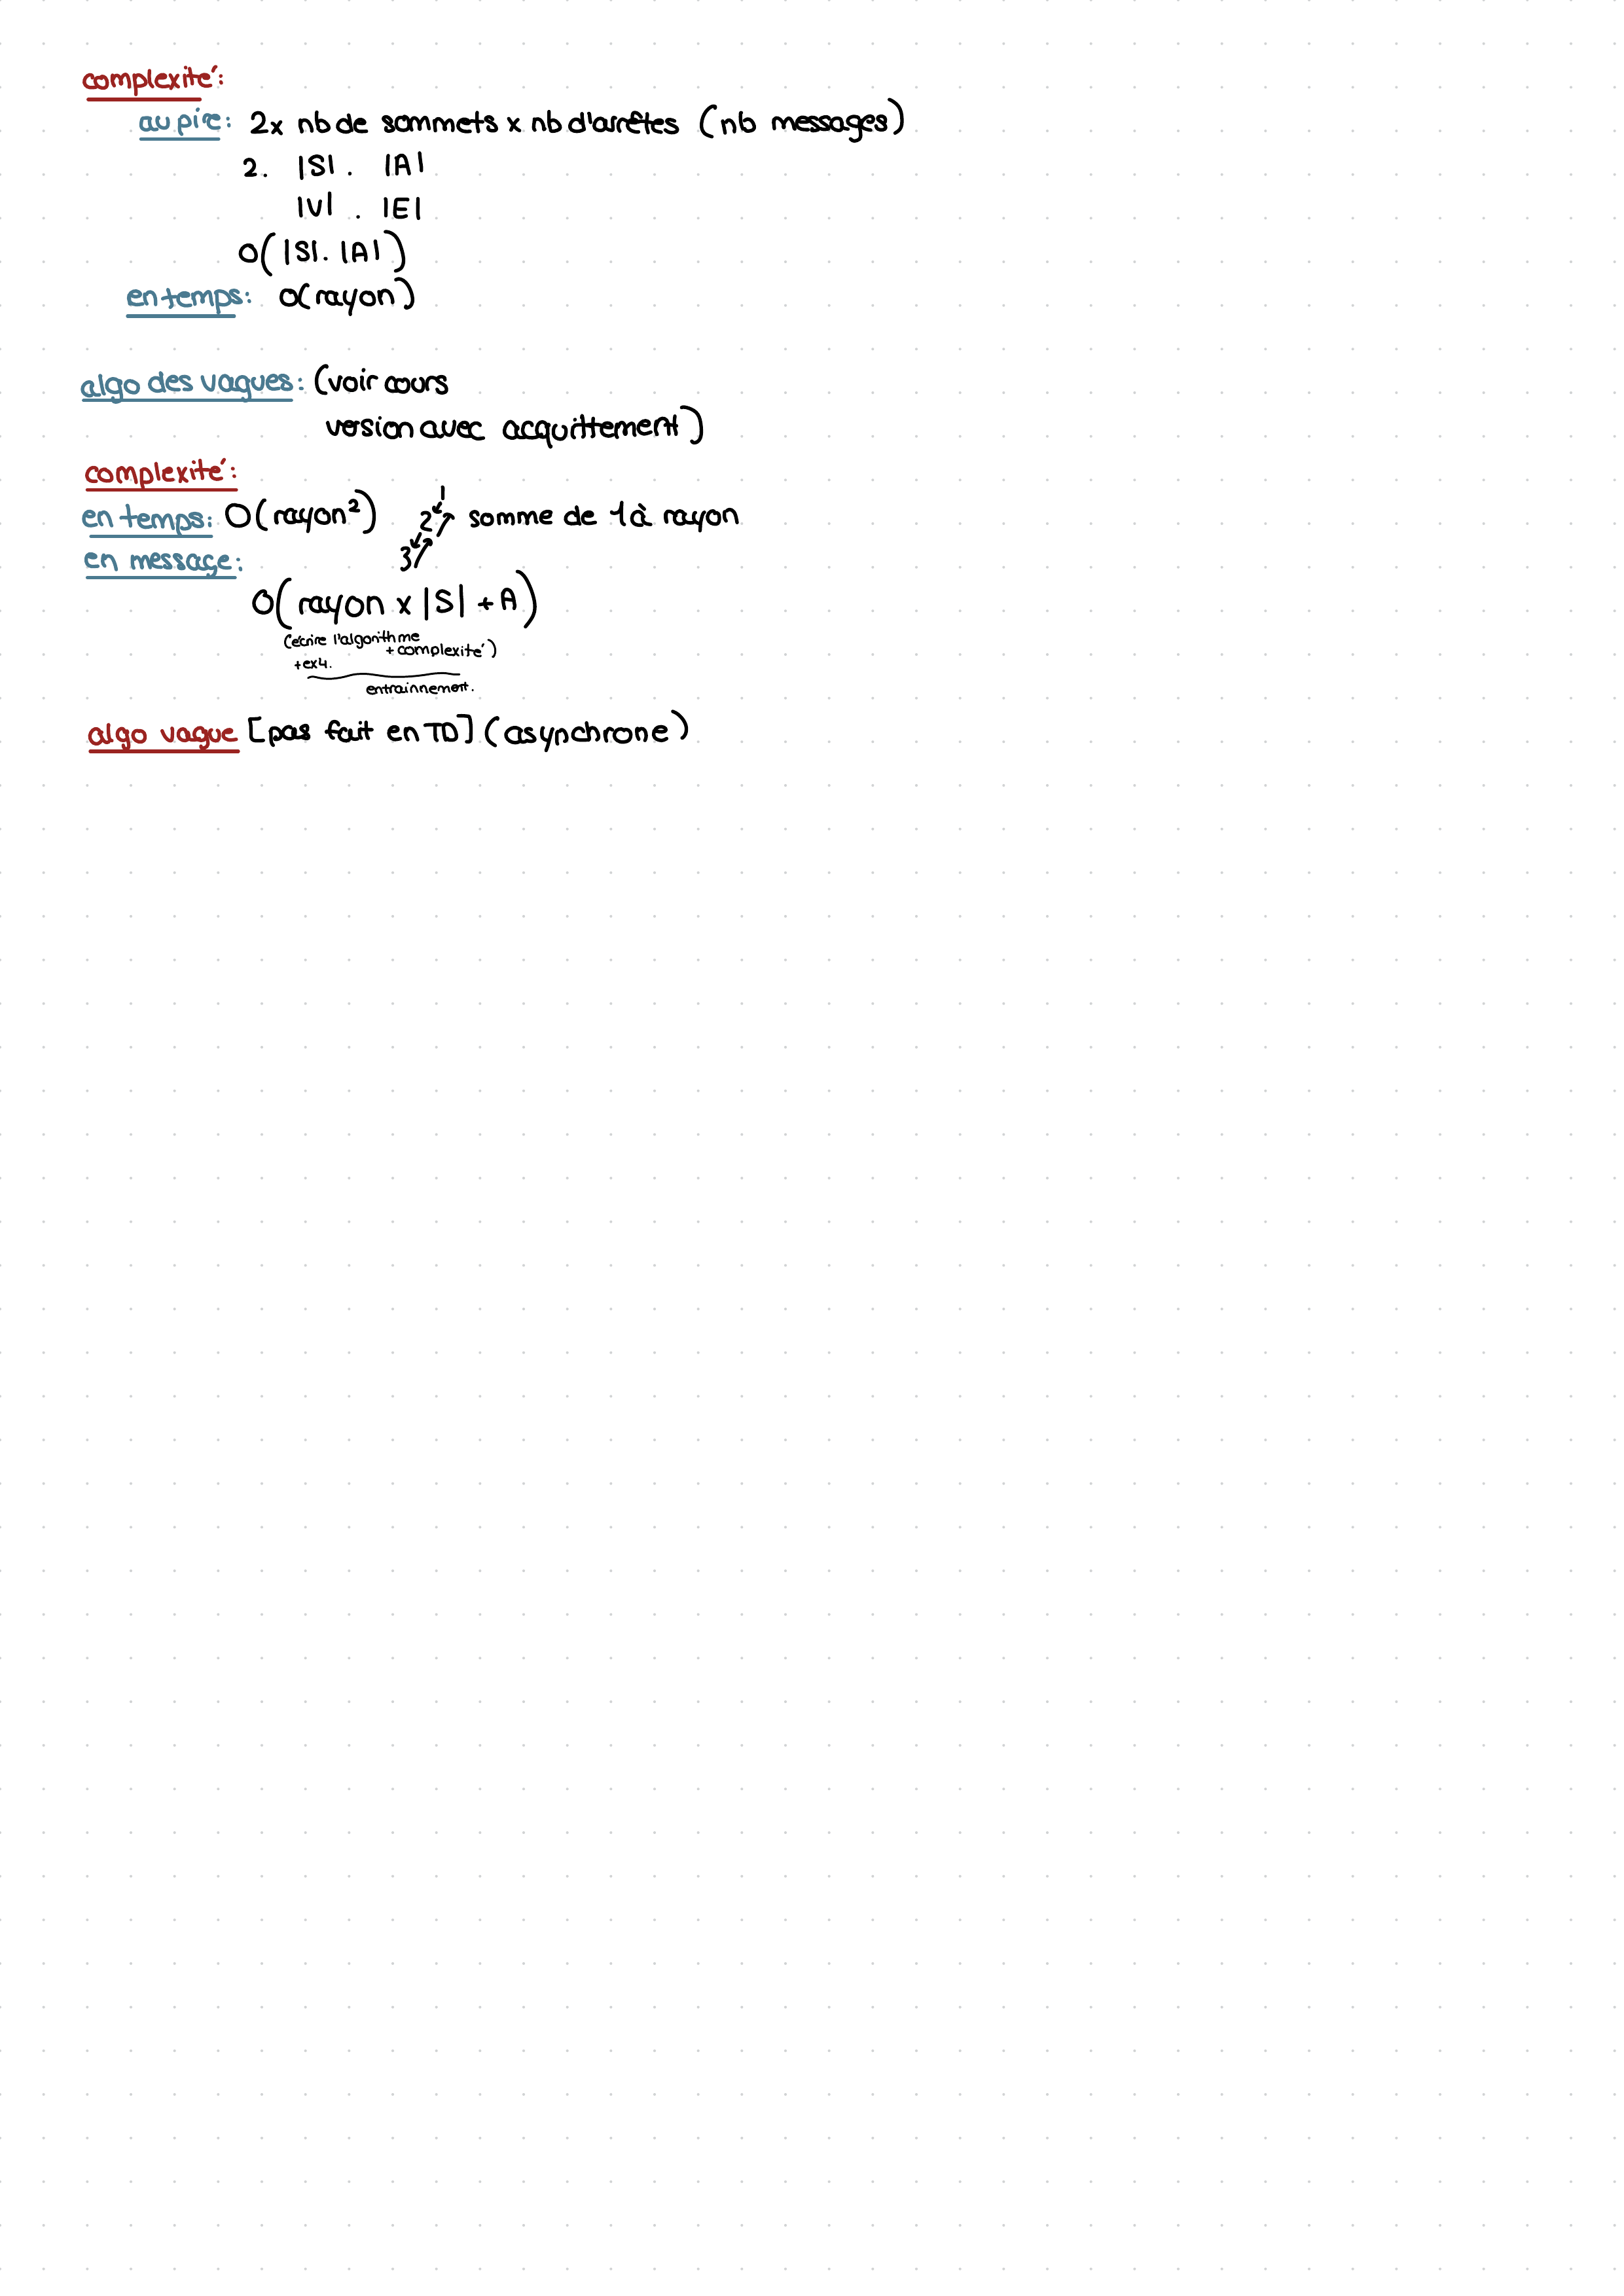 complexité:
au pire: 2x nb de sommets x nb d'arrêtes (nb messages)
2. |S| . |A|
|V| . |E|
O(|S|. |A|)
en temps: O(rayon)
algo des vagues: (voir cours
version avec acquittement)
complexité:
en temps: O(rayon²) 1 2 3 somme de 1 à rayon
en message:
O(rayon x |S| + A)
(écrire l'algorithme
+ complexité)
+ex4.
entrainnement.
algo vague [pas fait en TD] (asynchrone)